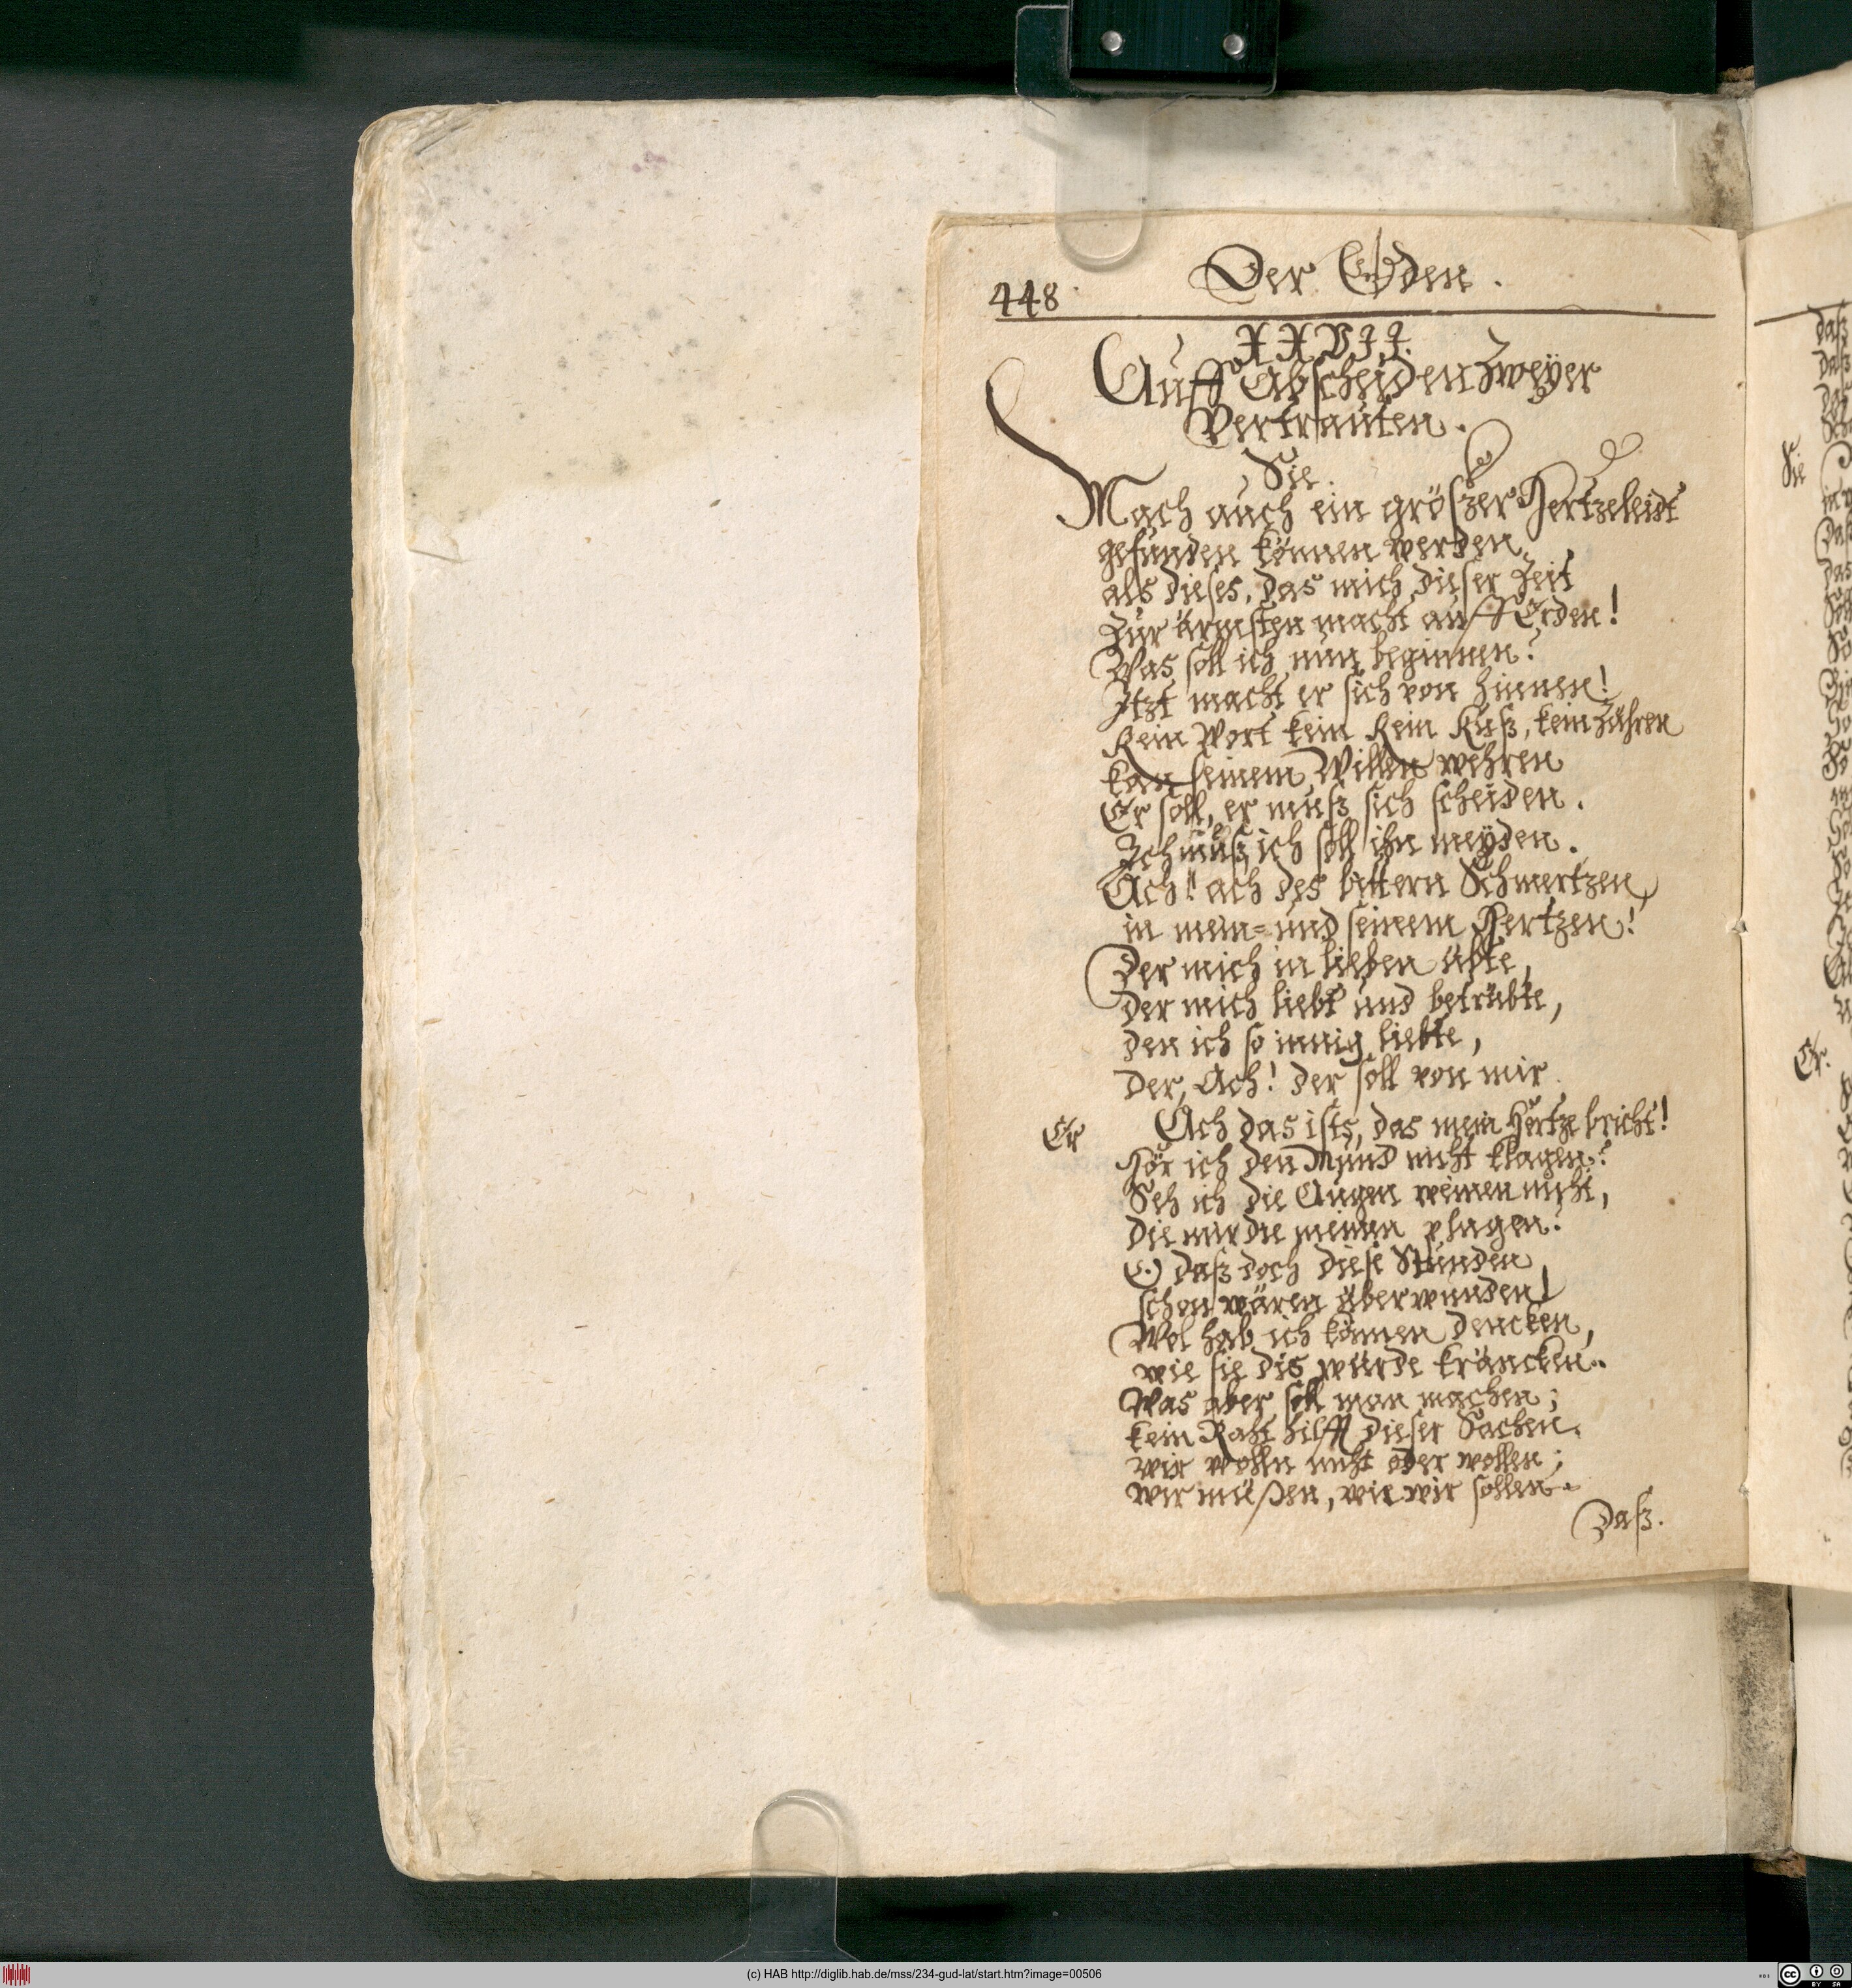 448
Der Oden.
XXVII.
Auff Abscheiden zweÿer
Vertrauten.
Sie.
Mach auch ein größer Hertzeleidt
gefunden können werden,
als dieses, das mich dieser Zeit
Zur ärmsten macht auff Erden!
Was soll ich nun beginnen?
Itzt macht er sich von hinnen!
Kein Wort kein Kein Kuß, kein Zähren
kan seinem Willen wehren
Er soll, er muß sich scheiden.
Ich muß, ich soll ihn meÿden.
Ach! ach des bittern Schmertzen,
in mein= und seinem Hertzen!
Der mich in lieben übte,
der mich liebt und betrübte,
den ich so innig liebte,
der, Ach! der soll von mir.
Er
Ach das ists, das mein Hertze bricht!
Hör ich den Mund nicht klagen?
Seh ich die Augen weinen nicht,
die mir die meinen plagen?
O daß doch diese Stunden
schon wären überwunden!
Wol hab ich können dencken,
wie sie dis würde kräncken.
Was aber soll man machen;
kein Raht hilfft dieser Sachen.
wir wolln nicht oder wollen;
wir müßen, wie wir sollen.
Daß.
Sie
Er.
(c) HAB http://diglib.hab.de/mss/234-gud-lat/start.htm?image=00506